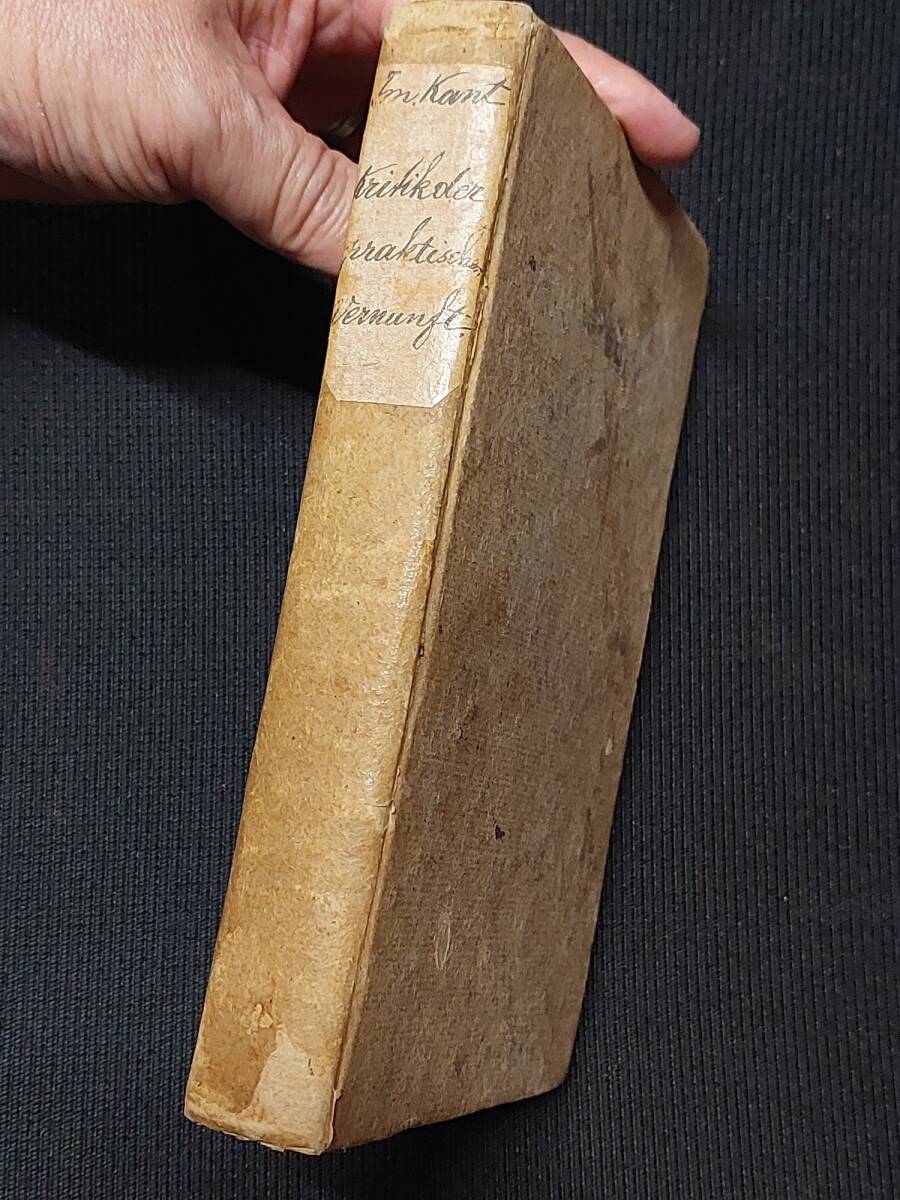 Im. Kant
Kritik der
praktischen
Vernunft.